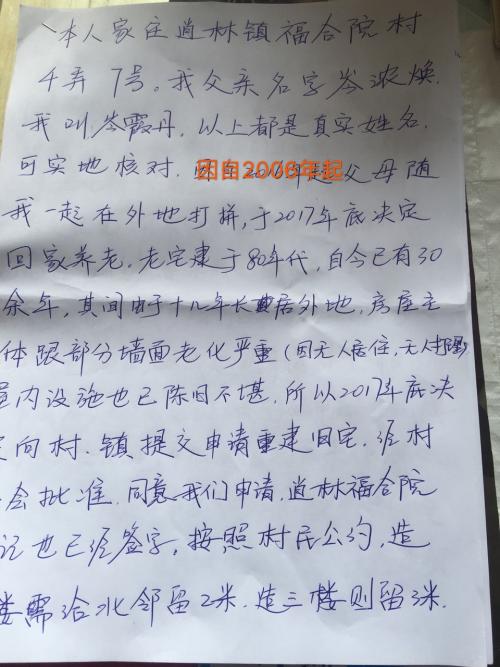 本人家住逍林镇福合院村
4弄7号。我父亲名字岑浓焕.
我叫岑霞丹，以上都是真实姓名.
可实地核对. 因自2006年起父母随
我一起在外地打拼,于2017年底决定
回家养老.老宅建于80年代,自今已有30
余年,其间由于十几年长期居外地,房屋主
体跟部分墙面老化严重(因无人居住,无人打理)
室内设施也已陈旧不堪.所以2017年底决
定向村.镇提交申请重建旧宅.经村
会批准.同意我们申请,逍林福合院
记也已经签字,按照村民公约,造
楼需给北邻留2米.造三楼则留3米.